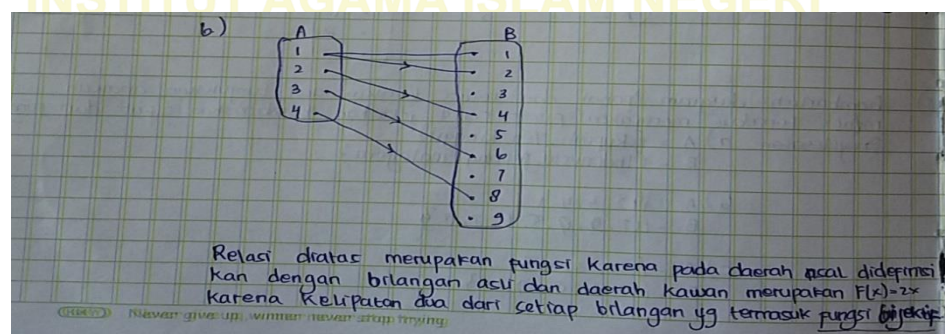 INSTITUT AGAMA ISLAM NEGERI
b)
A B
1 1
2 2
3 3
4 4
5
6
7
8
9
Relasi diatas merupakan fungsi karena pada daerah asal didefinisi
kan dengan bilangan asli dan daerah kawan merupakan F(x)=2x
karena kelipatan dua dari setiap bilangan yg termasuk fungsi bijektif
Never give up, winner never stop trying